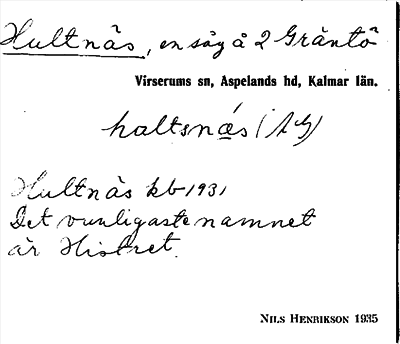 Hultnäs, en såg å 2 Gräntö
Virserums sn, Aspelands hd, Kalmar län.
haltsnæs
Hultnäs kb 1931
Det vanligaste namnet
är Histret.
NILS HENRIKSON 1935